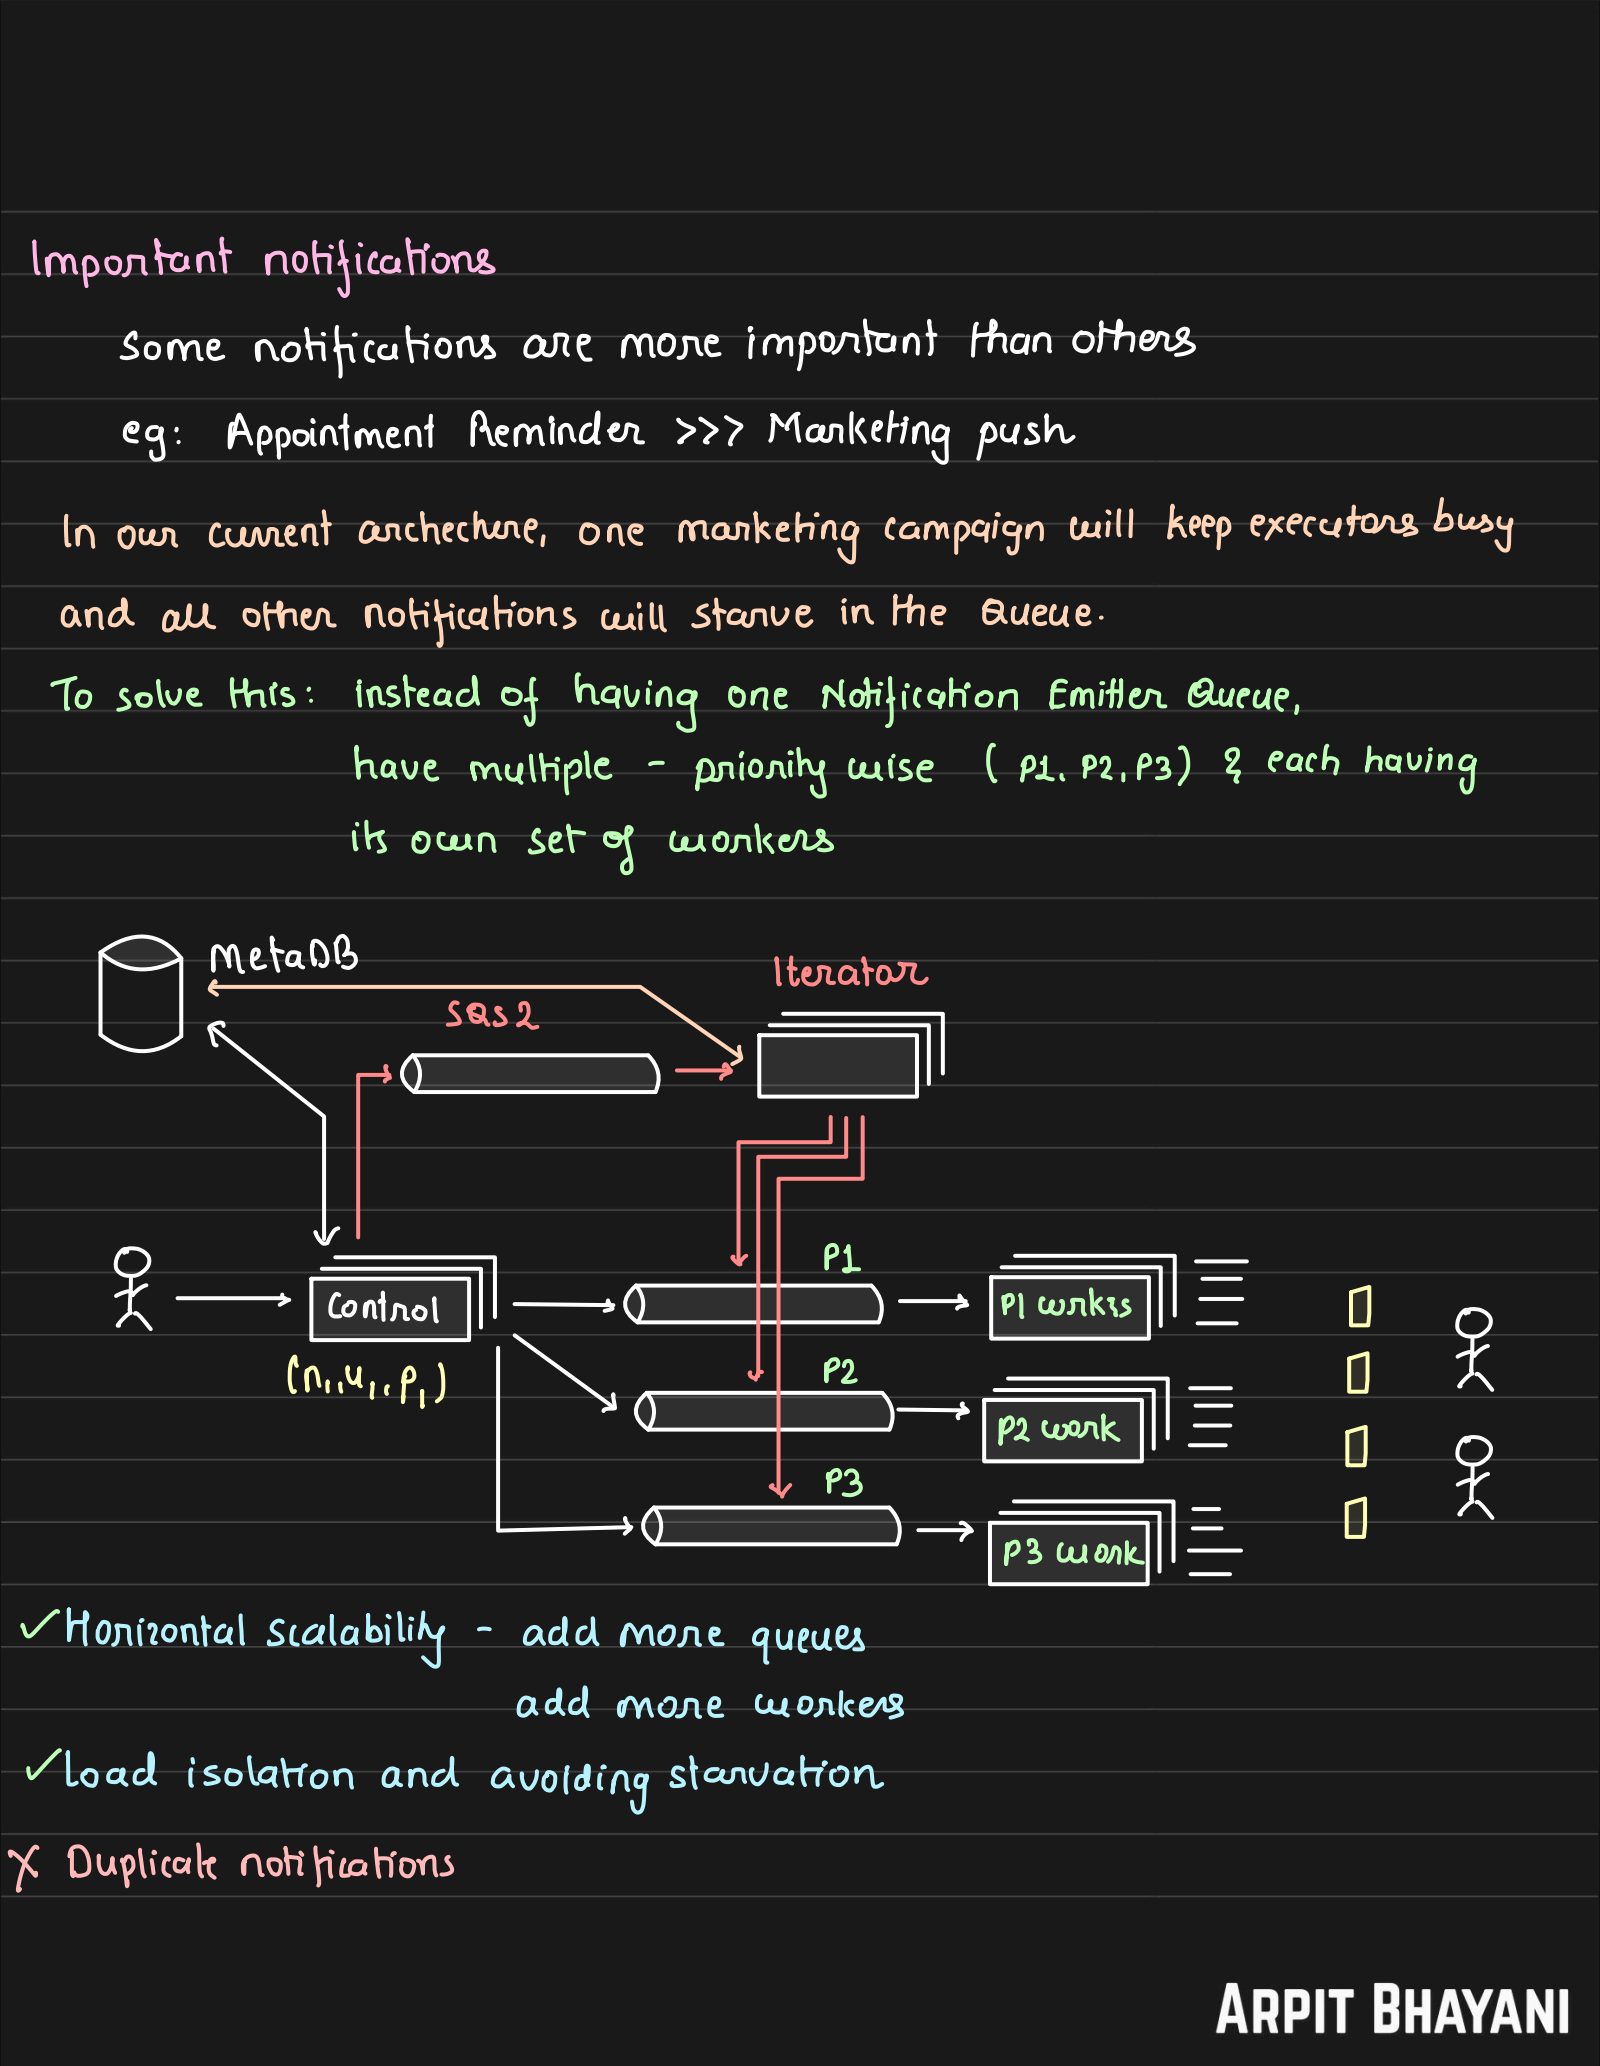 Important notifications
Some notifications are more important than others
eg: Appointment Reminder >>> Marketing push
In our current archecture, one marketing campaign will keep executors busy
and all other notifications will starve in the Queue.
To solve this: instead of having one Notification Emitter Queue,
have multiple - priority wise (P1, P2, P3) & each having
its own set of workers
MetaDB
Iterator
SQS2
P1
Control
P1 workrs
(n1, u1, p1)
P2
P2 work
P3
P3 work
✓ Horizontal scalability - add more queues
add more workers
✓ Load isolation and avoiding starvation
X Duplicate notifications
ARPIT BHAYANI